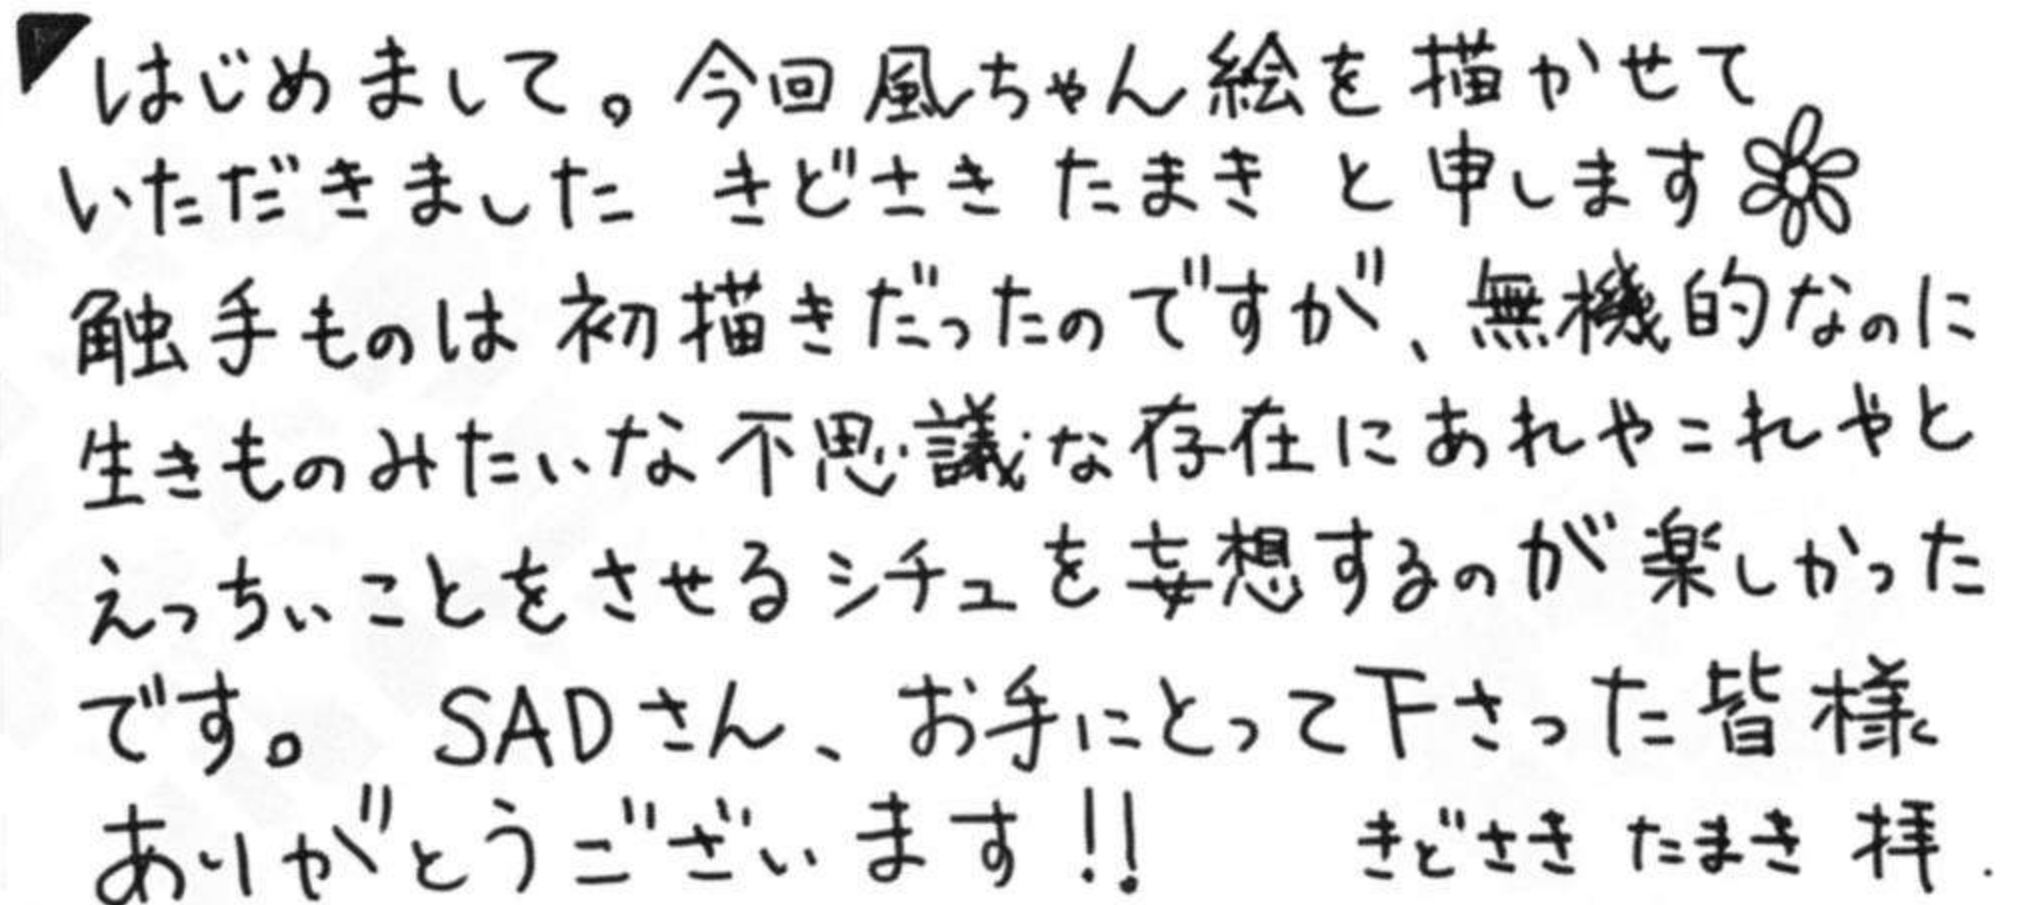 はじめまして。今回風ちゃん絵を描かせて
いただきました きどさき たまき と申します
触手ものは初描きだったのですが、無機的なのに
生きものみたいな不思議な存在にあれやこれやと
えっちぃことをさせるシチュを妄想するのが楽しかった
です。 SADさん、お手にとって下さった皆様
ありがとうございます!! きどさき たまき 拝.